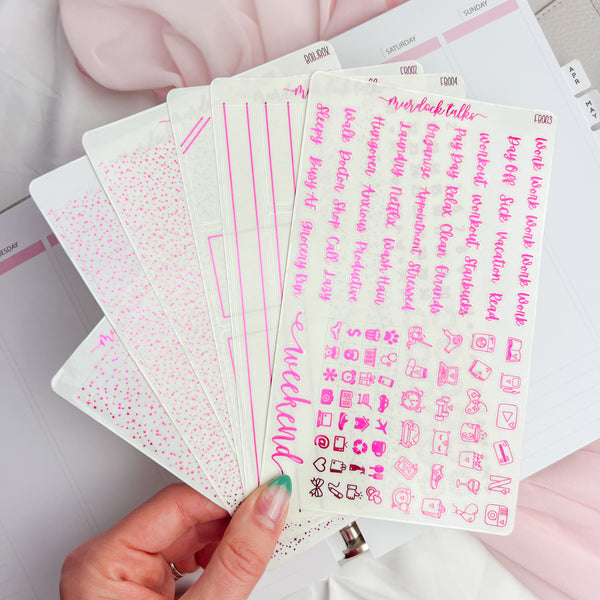 SUNDAY
SATURDAY
APR
MAY
FB002
FB004
FB003
Murdocktalks
Work Work Work Work Work
Day Off Sick Vacation Read
Workout Workout Starbucks
Pay Day Relax Clean Errands
Organize Appointment Stressed
Laundry Netflix Wash Hair
Hangover Anxious Productive
Walk Doctor Shop Call Lazy
Sleepy Busy AF Grocery Run
weekend